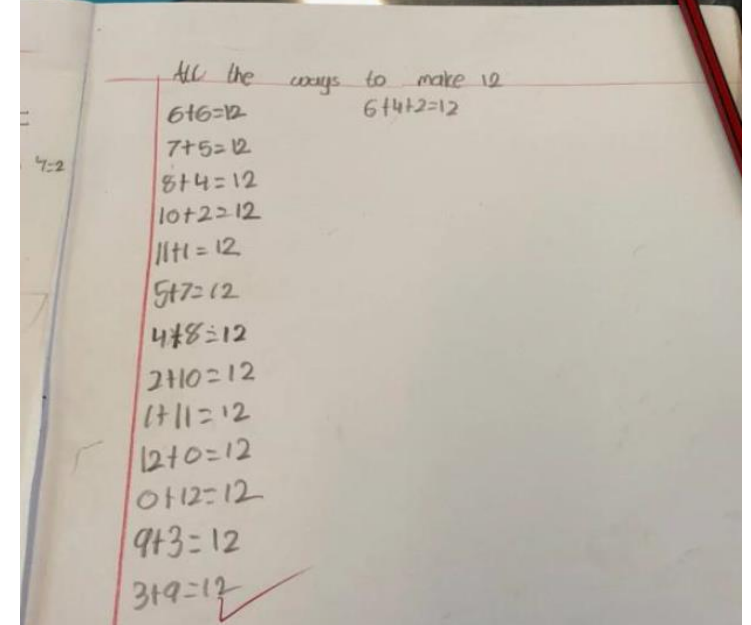 All the ways to make 12
6+6=12
6+4+2=12
7+5=12
8+4=12
10+2=12
11+1=12
5+7=12
4+8=12
2+10=12
1+11=12
12+0=12
0+12=12
9+3=12
3+9=12